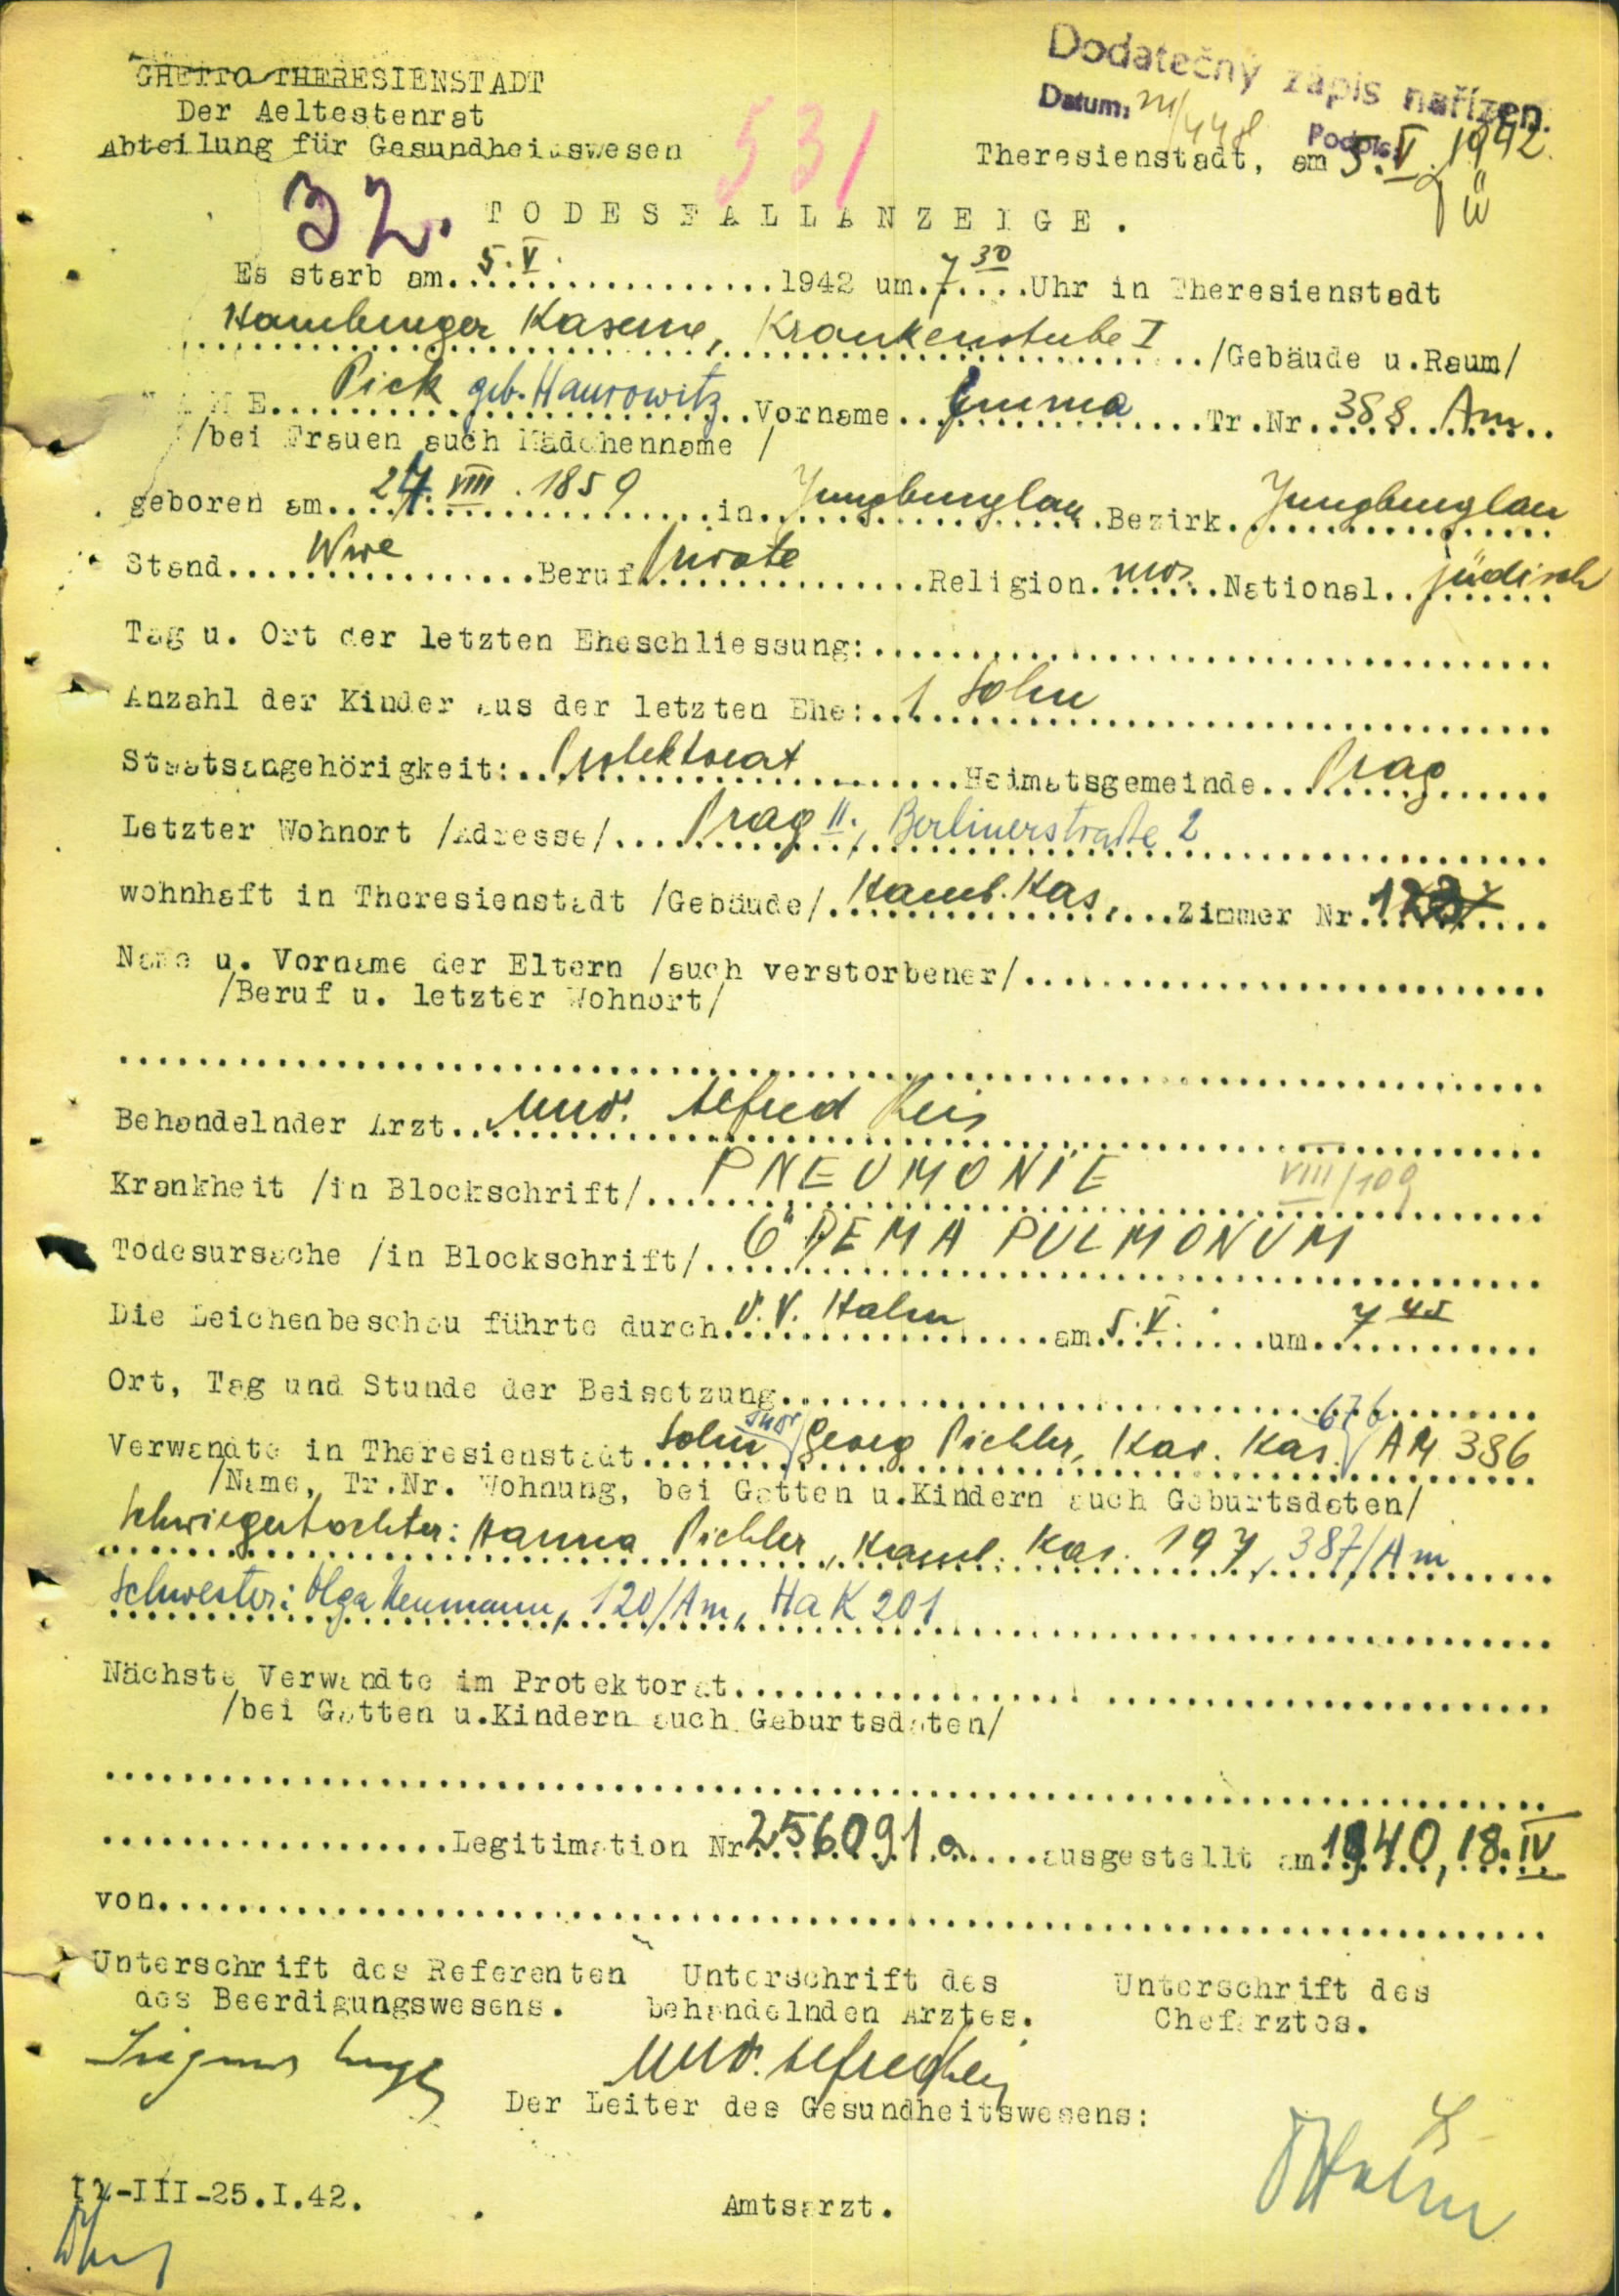 GHETTO THERESIENSTADT
Der Aeltestenrat
Abteilung für Gesundheitswesen
Dodatečný zápis nařízen.
Datum: Podpis:
531
Theresienstadt, am 5.V.1942.
32.
TODESFALLANZEIGE.
Es starb am 5.V. 1942 um 7 30 Uhr in Theresienstadt
Hamburger Kaserne, Krankenstube I /Gebäude u.Raum/
NAME Pick geb. Haurowitz Vorname Emma Tr.Nr. 388 Am
/bei Frauen auch Mädchenname /
geboren am 24. VIII. 1859 in Jungbunzlau Bezirk Jungbunzlau
Stand Wwe Beruf Private Religion mos. National jüdisch
Tag u. Ort der letzten Eheschliessung:
Anzahl der Kinder aus der letzten Ehe: 1 Sohn
Staatsangehörigkeit: Protektorat Heimatsgemeinde Prag
Letzter Wohnort /Adresse/ Prag II., Berlinerstraße 2
wohnhaft in Theresienstadt /Gebäude/ Hamb. Kas. Zimmer Nr.
Name u. Vorname der Eltern /auch verstorbener/
/Beruf u. letzter Wohnort/
Behandelnder Arzt MUDr. Alfred Reis
Krankheit /in Blockschrift/ PNEUMONIE VIII/109
Todesursache /in Blockschrift/ ÖDEMA PULMONUM
Die Leichenbeschau führte durch V. Hahn am 5.V. um 7 45
Ort, Tag und Stunde der Beisetzung
676
Verwandte in Theresienstadt Sohn Georg Pichler, Kav. Kas. AM 386
/Name, Tr.Nr. Wohnung, bei Gatten u.Kindern auch Geburtsdaten/
Schwiegertochter: Hanna Pichler, Hamb. Kas. 197, 387/Am
Schwester: Olga Neumann, 120/Am, HaK 201
Nächste Verwandte im Protektorat
/bei Gatten u.Kindern auch Geburtsdaten/
Legitimation Nr 256091 a ausgestellt am 1940, 18.IV
von
Unterschrift des Referenten Unterschrift des Unterschrift des
des Beerdigungswesens. behandelnden Arztes. Chefarztes.
MUDr. Alfred Reis
Der Leiter des Gesundheitswesens:
IV-III-25.I.42. Amtsarzt.